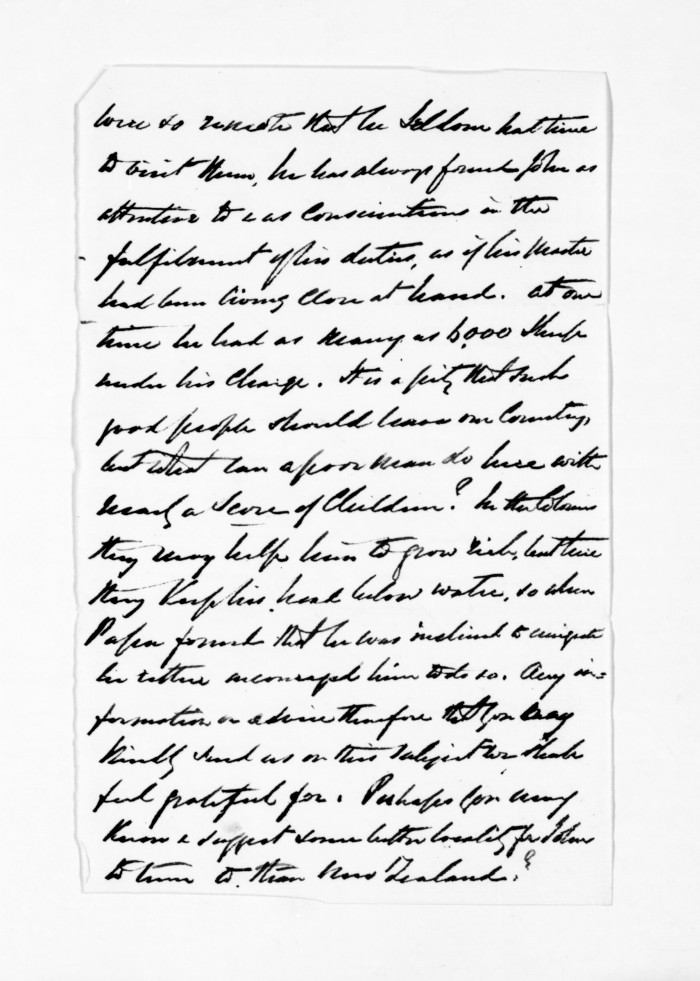 were so remote that he seldom had time
to visit them, he has always found John as
attentive to & as Conscientious in the
fulfilment of his duties, as if his Master
had been living close at hand. at one
time he had as many as 6,000 Sheep
under his charge. It is a pity that such
good people should leave our Country,
but what can a poor man do here with
nearly a Score of Children? In the Colonies
they may help him to grow rich, but here
they Keep his head below water, so when
Papa found that he was inclined to emigrate
he rather encouraged him to do so. Any in=
formation or advice therefore that you may
Kindly send us on this subject we shall
feel grateful for. Perhaps you may
Know & suggest some better locality for John
to turn to than New Zealand?